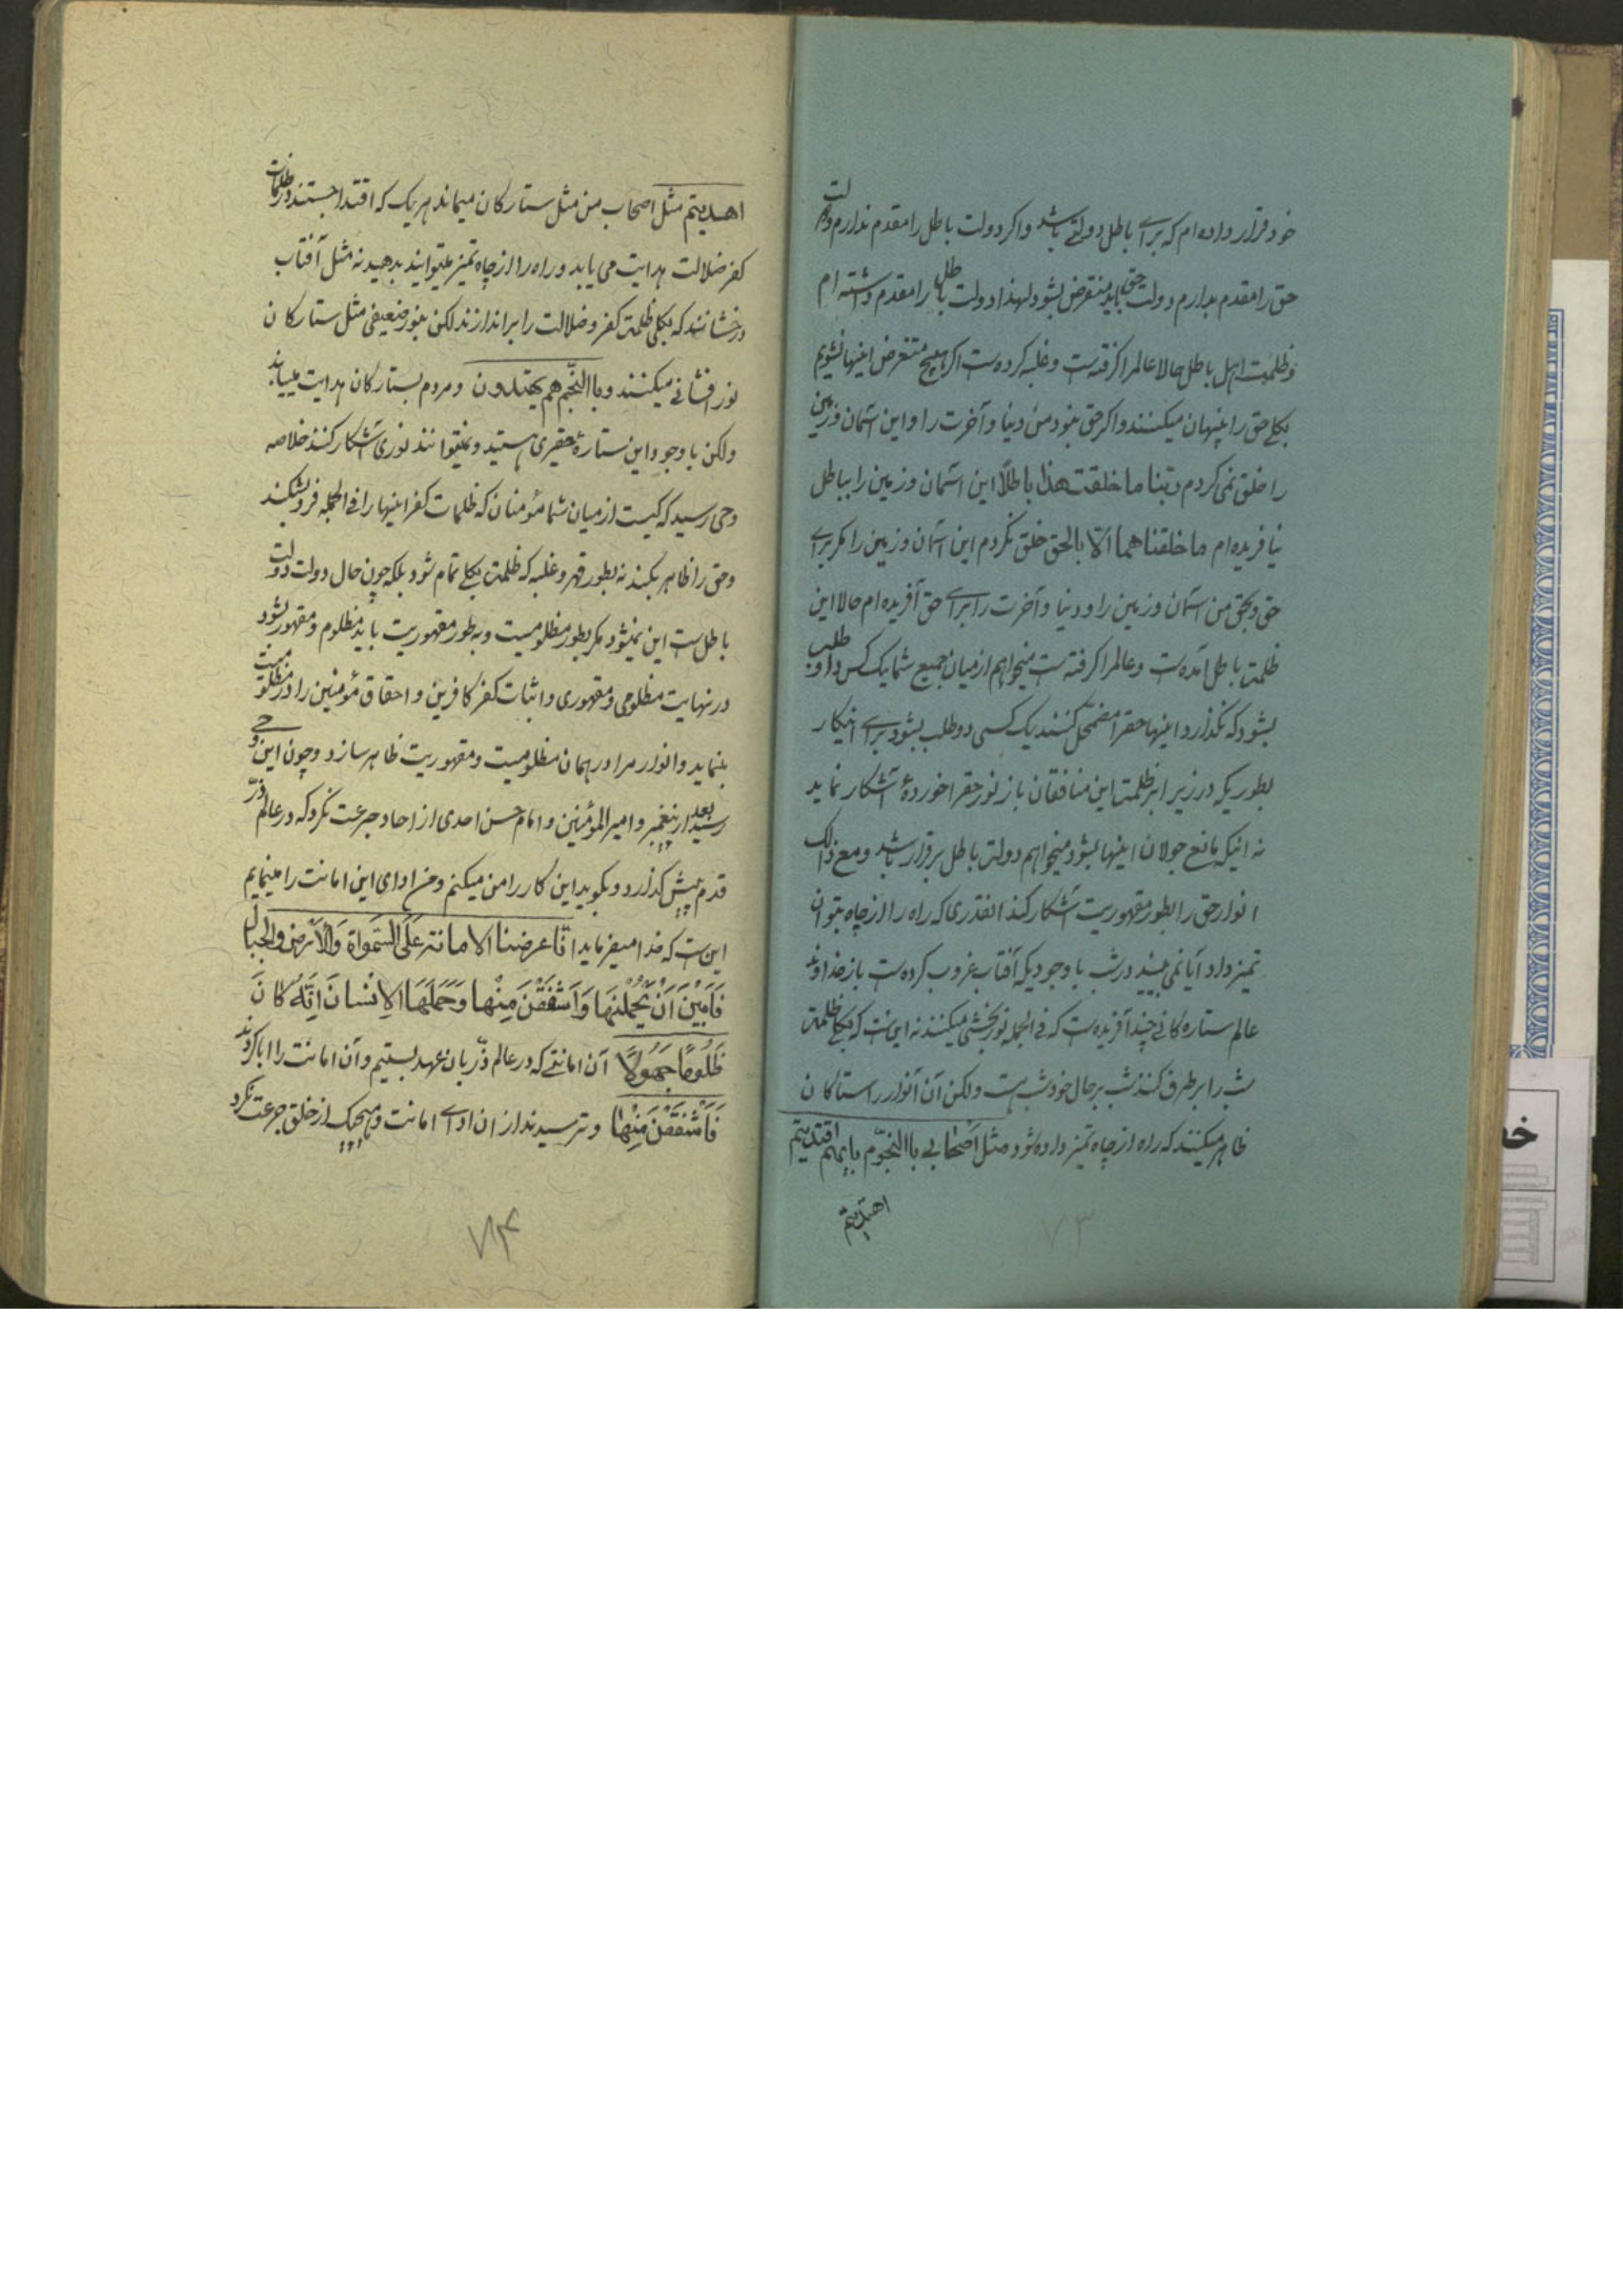 خود قرار داده‌ام که برای باطل دولتی باشد و اکر دولت باطل را مقدم ندارم دولت
حق را مقدم بدارم دولت حق باید منقرض بشود لهذا دولت باطل را مقدم داشته‌ام
و ظلمت اهل باطل حالا عالمرا کرفته‌ست و غلبه کرده‌ست اکر هیچ متعرض اینها نشویم
بکلی حق را پنهان میکنند و اکر حق نبود من دنیا و آخرت را و این آسمان و زمین
را خلق نمی کردم ربّنا ما خلقت هذا باطلًا این آسمان و زمین را بباطل
نیافریده‌ام ما خلقناهما الّا بالحق خلق نکردم این آسمان و زمین را مکر برای
حق و بحق من آسمان و زمین را و دنیا و آخرت را برای حق آفریده‌ام حالا این
ظلمت باطل آمده‌ست و عالمرا کرفته‌ست میخواهم از میان جمیع شما یک کس داوطلب
بشود که نکذارد اینها حقرا مضمحل کنند یک کسی دوطلب بشود برای اینکار
بطوریکه در زیر ابر ظلمت این منافقان باز نور حقرا خوردهٔ آشکار نماید
نه اینکه مانع جولان اینها بشود میخواهم دولت باطل برقرار باشد و مع ذالک
انوار حق را بطور مقهوریت آشکار کند انقدری که راه را از چاه بتوان
تمیز داد آیا نمی بینید در شب با وجود یکه آفتاب غروب کرده‌ست باز خداوند
عالم ستاره‌کانی چند آفریده‌ست که فی الجمله نوربخشی میکنند نه این‌ست که بکلی ظلمت
شب را بر طرف کنند شب بر حال خود شب‌ست ولکن آن آنوار را ستاکان
ظاهر میکنند که راه از چاه تمیز داده شود مثل اصحابی باالنجوّم بایهم اقتدیتم
اهتدیتم
۷۳
اهدیتم مثل اصحاب من مثل ستارکان میماند هر یک که اقتدا جستند در ظلمات
کفر ضلالت هدایت می یابد و راه را از چاه تمیز میتوانید بدهید نه مثل آفتاب
درخشانند که بکلی ظلمت کفر و ضلالت را براندازند لکن بنور ضعیفی مثل ستارکان
نور افشانی میکنند و باالنّجم هم یهتدون و مردم بستارکان هدایت مییابند
ولکن با وجود این ستارهٔ حقیری هستید و نمیتوانند نوری آشکار کنند خلاصه
وحی رسید که کیست از میان شما مؤمنان که ظلمات کفر اینها را فی الجمله فرو بشکند
و حق را ظاهر بکند نه بطور قهر و غلبه که ظلمت بکلی تمام شود بلکه چون حال دولت دولت
باطل‌ست این نمیشود مکر بطور مظلومیت و به طور مقهوریت باید مظلوم و مقهور شود
در نهایت مظلومی و مقهوری و اثبات کفر کافرین و احقاق مؤمنین را در مظلومیت
بنماید و انوار مرا در همان مظلومیت و مقهوریت ظاهر سازد و چون این وحی
رسید بعد از پیغمبر و امیر المؤمنین و امام حسن احدی از احاد جرعت نکرد که در عالم ذرّ
قدم پیش کذارد و بکوید این کار را من میکنم و من ادای این امانت را مینمایم
این‌ست که خدا میفرماید انّا عرضنا الامانته عَلَی السَّمٰواة وَالْاَرْض والجبال
فَاَبَیْنَ اَنْ یَحْمِلْنَهَا وَ اَشْفَقْنَ مِنْها وَ حَمَلَهَا الاِنْسانَ اِنَّهُ کانَ
ظَلُومًا جَهُولًا آن امانتی که در عالم ذّر بان عهد بستیم و آن امانت را ابا کردند
فَاَشْفَقْنَ مِنْهٰا و ترسیدند از ان ادای امانت و هیچیک از خلق جرعت نکرد
۷۴